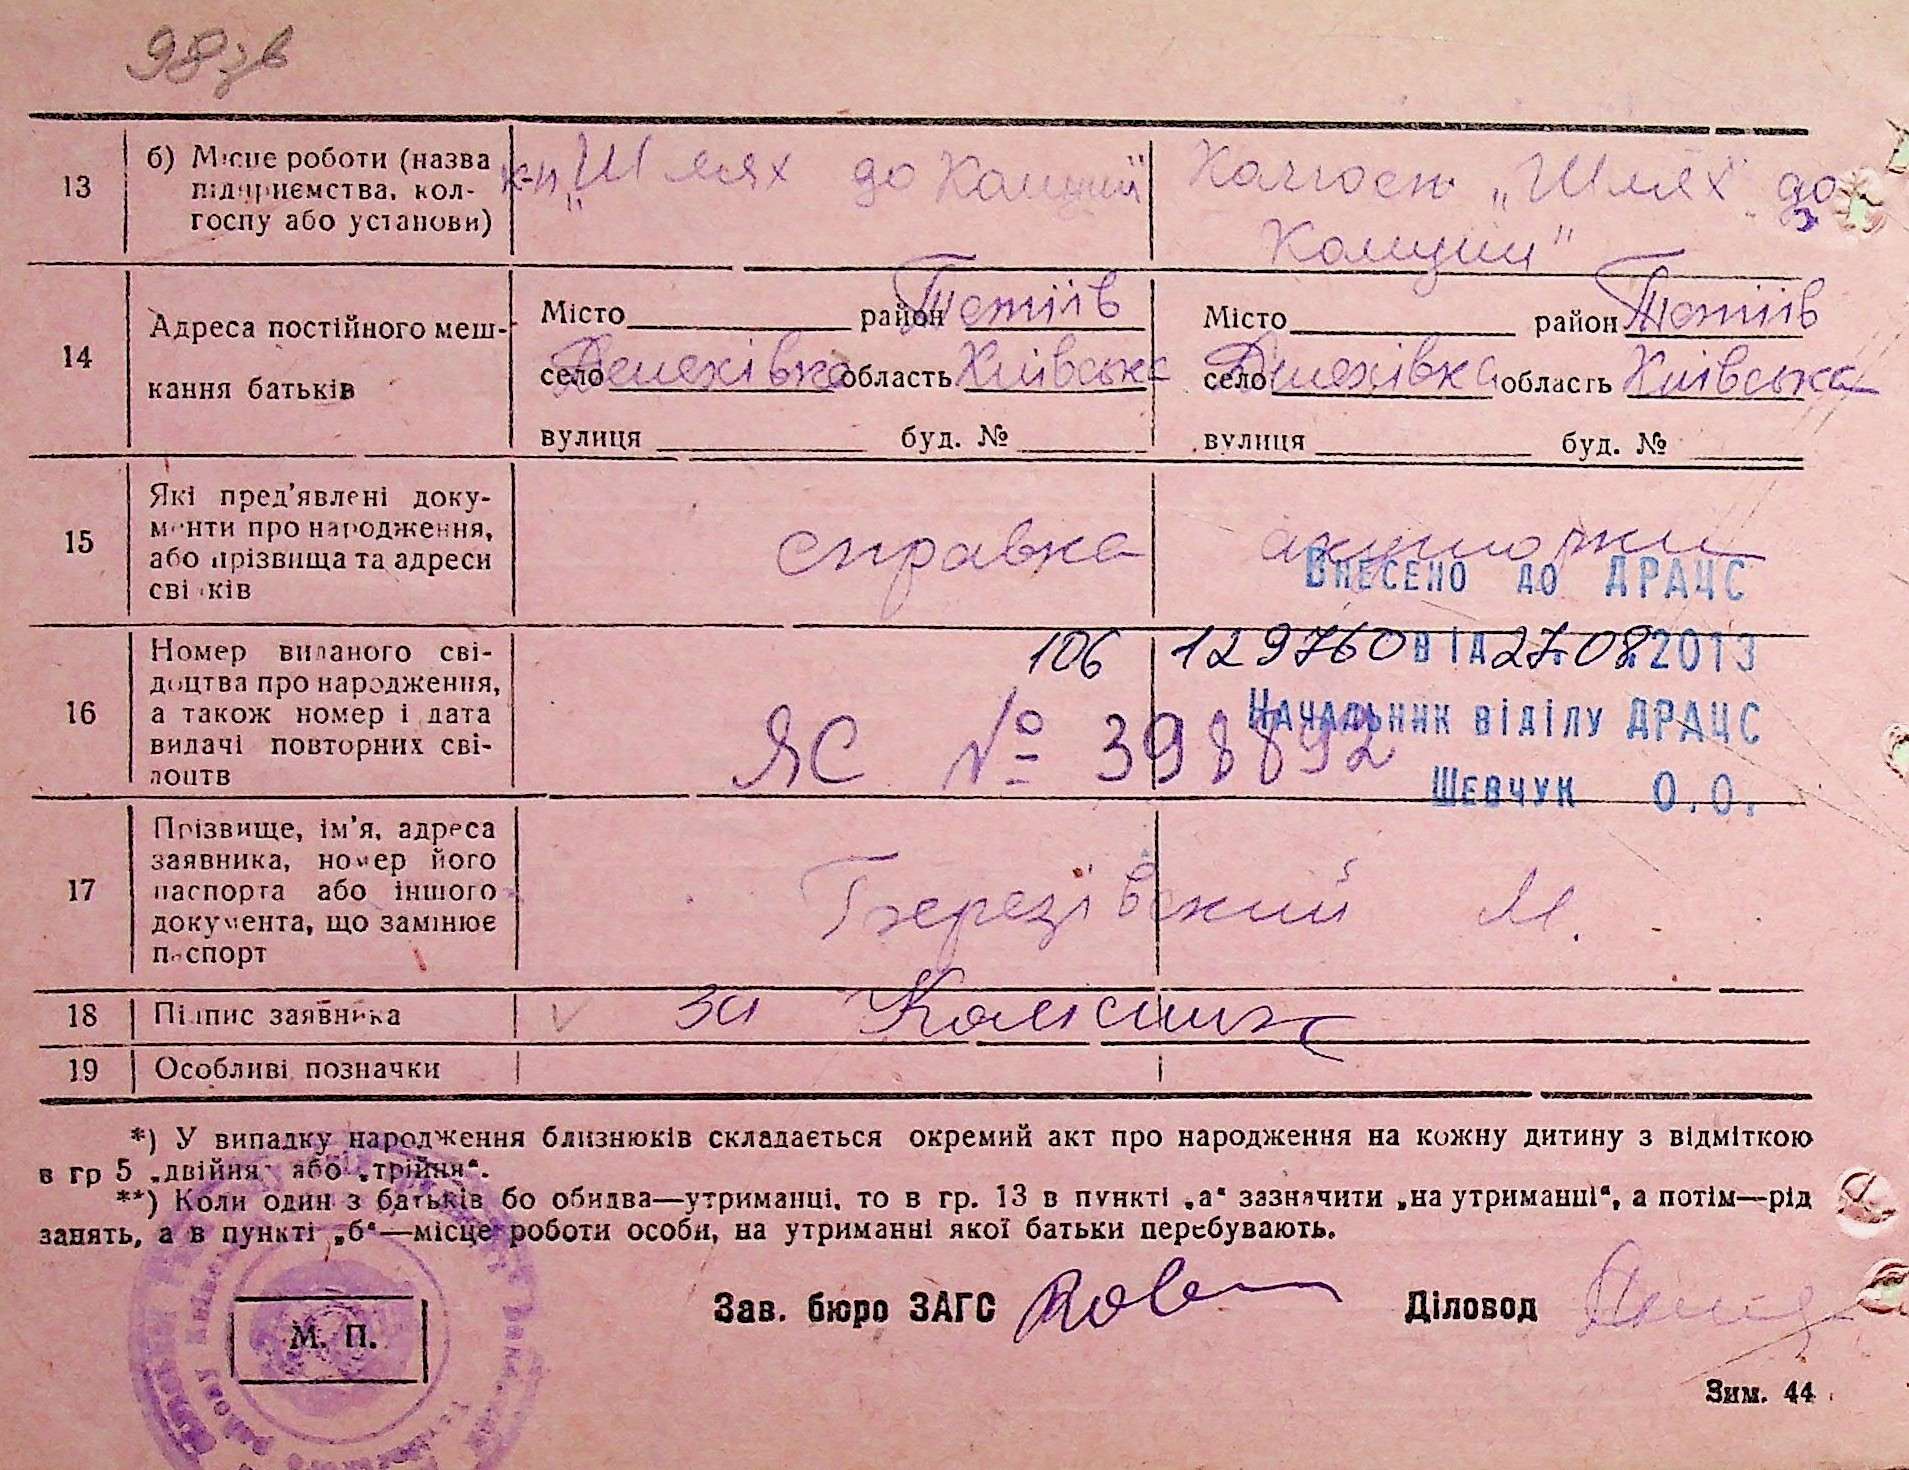 98 зв
13
б) Місце роботи (назва підприємства, кол-
госпу або установи)
к-п „Шлях до Комуни"
Колгосп „Шлях до
Комуни"
14
Адреса постійного меш-
кання батьків
Місто район Тетіїв
село Денехівка область Київська
вулиця буд. №
Місто район Тетіїв
село Денехівка область Київська
вулиця буд. №
15
Які пред'явлені доку-
менти про народження,
або прізвища та адреси
свідків
справка акушорки
Внесено до ДРАЦС
106 129760 від 27.08.2013
Начальник відділу ДРАЦС
Шевчук О.О.
16
Номер виданого сві-
доцтва про народження,
а також номер і дата
видачі повторних сві-
доцтв
ЯС № 398892
17
Прізвище, ім'я, адреса
заявника, номер його
паспорта або іншого
документа, що замінює
паспорт
Березівский М.
18
Підпис заявника
за
19
Особливі позначки
*) У випадку народження близнюків складається окремий акт про народження на кожну дитину з відміткою
в гр 5 „двійня" або „трійня".
**) Коли один з батьків бо обидва—утриманці, то в гр. 13 в пункті „а" зазначити „на утриманні", а потім—рід
занять, а в пункті „б"—місце роботи особи, на утриманні якої батьки перебувають.
М. П.
Зав. бюро ЗАГС
Діловод
Зим. 44